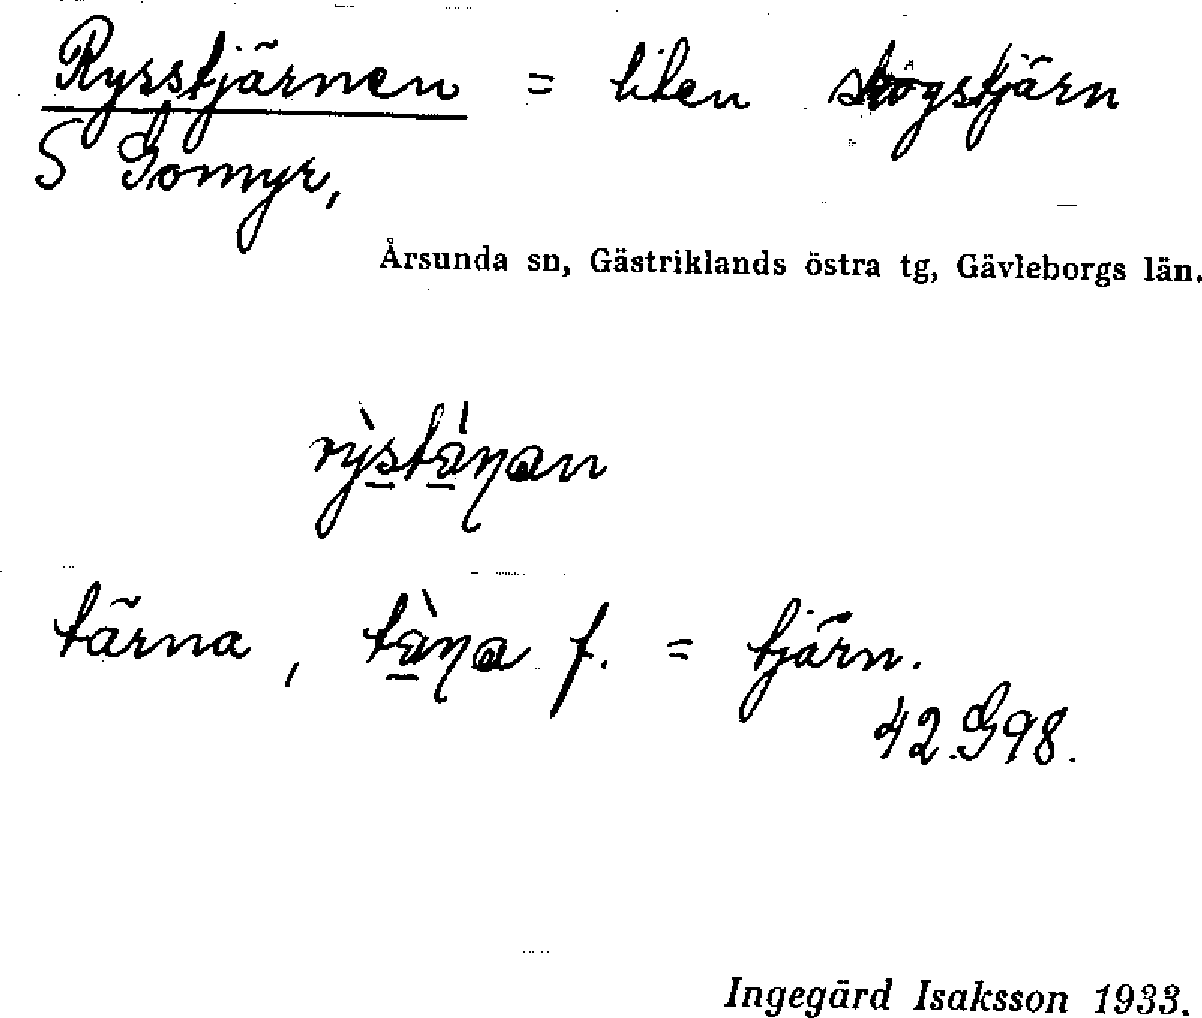 Rysstjärnen = liten skogstjärn
S Gomyr,
Årsunda sn, Gästriklands östra tg, Gävleborgs län.
tärna, f. = tjärn.
42.G98.
Ingegärd Isaksson 1933.